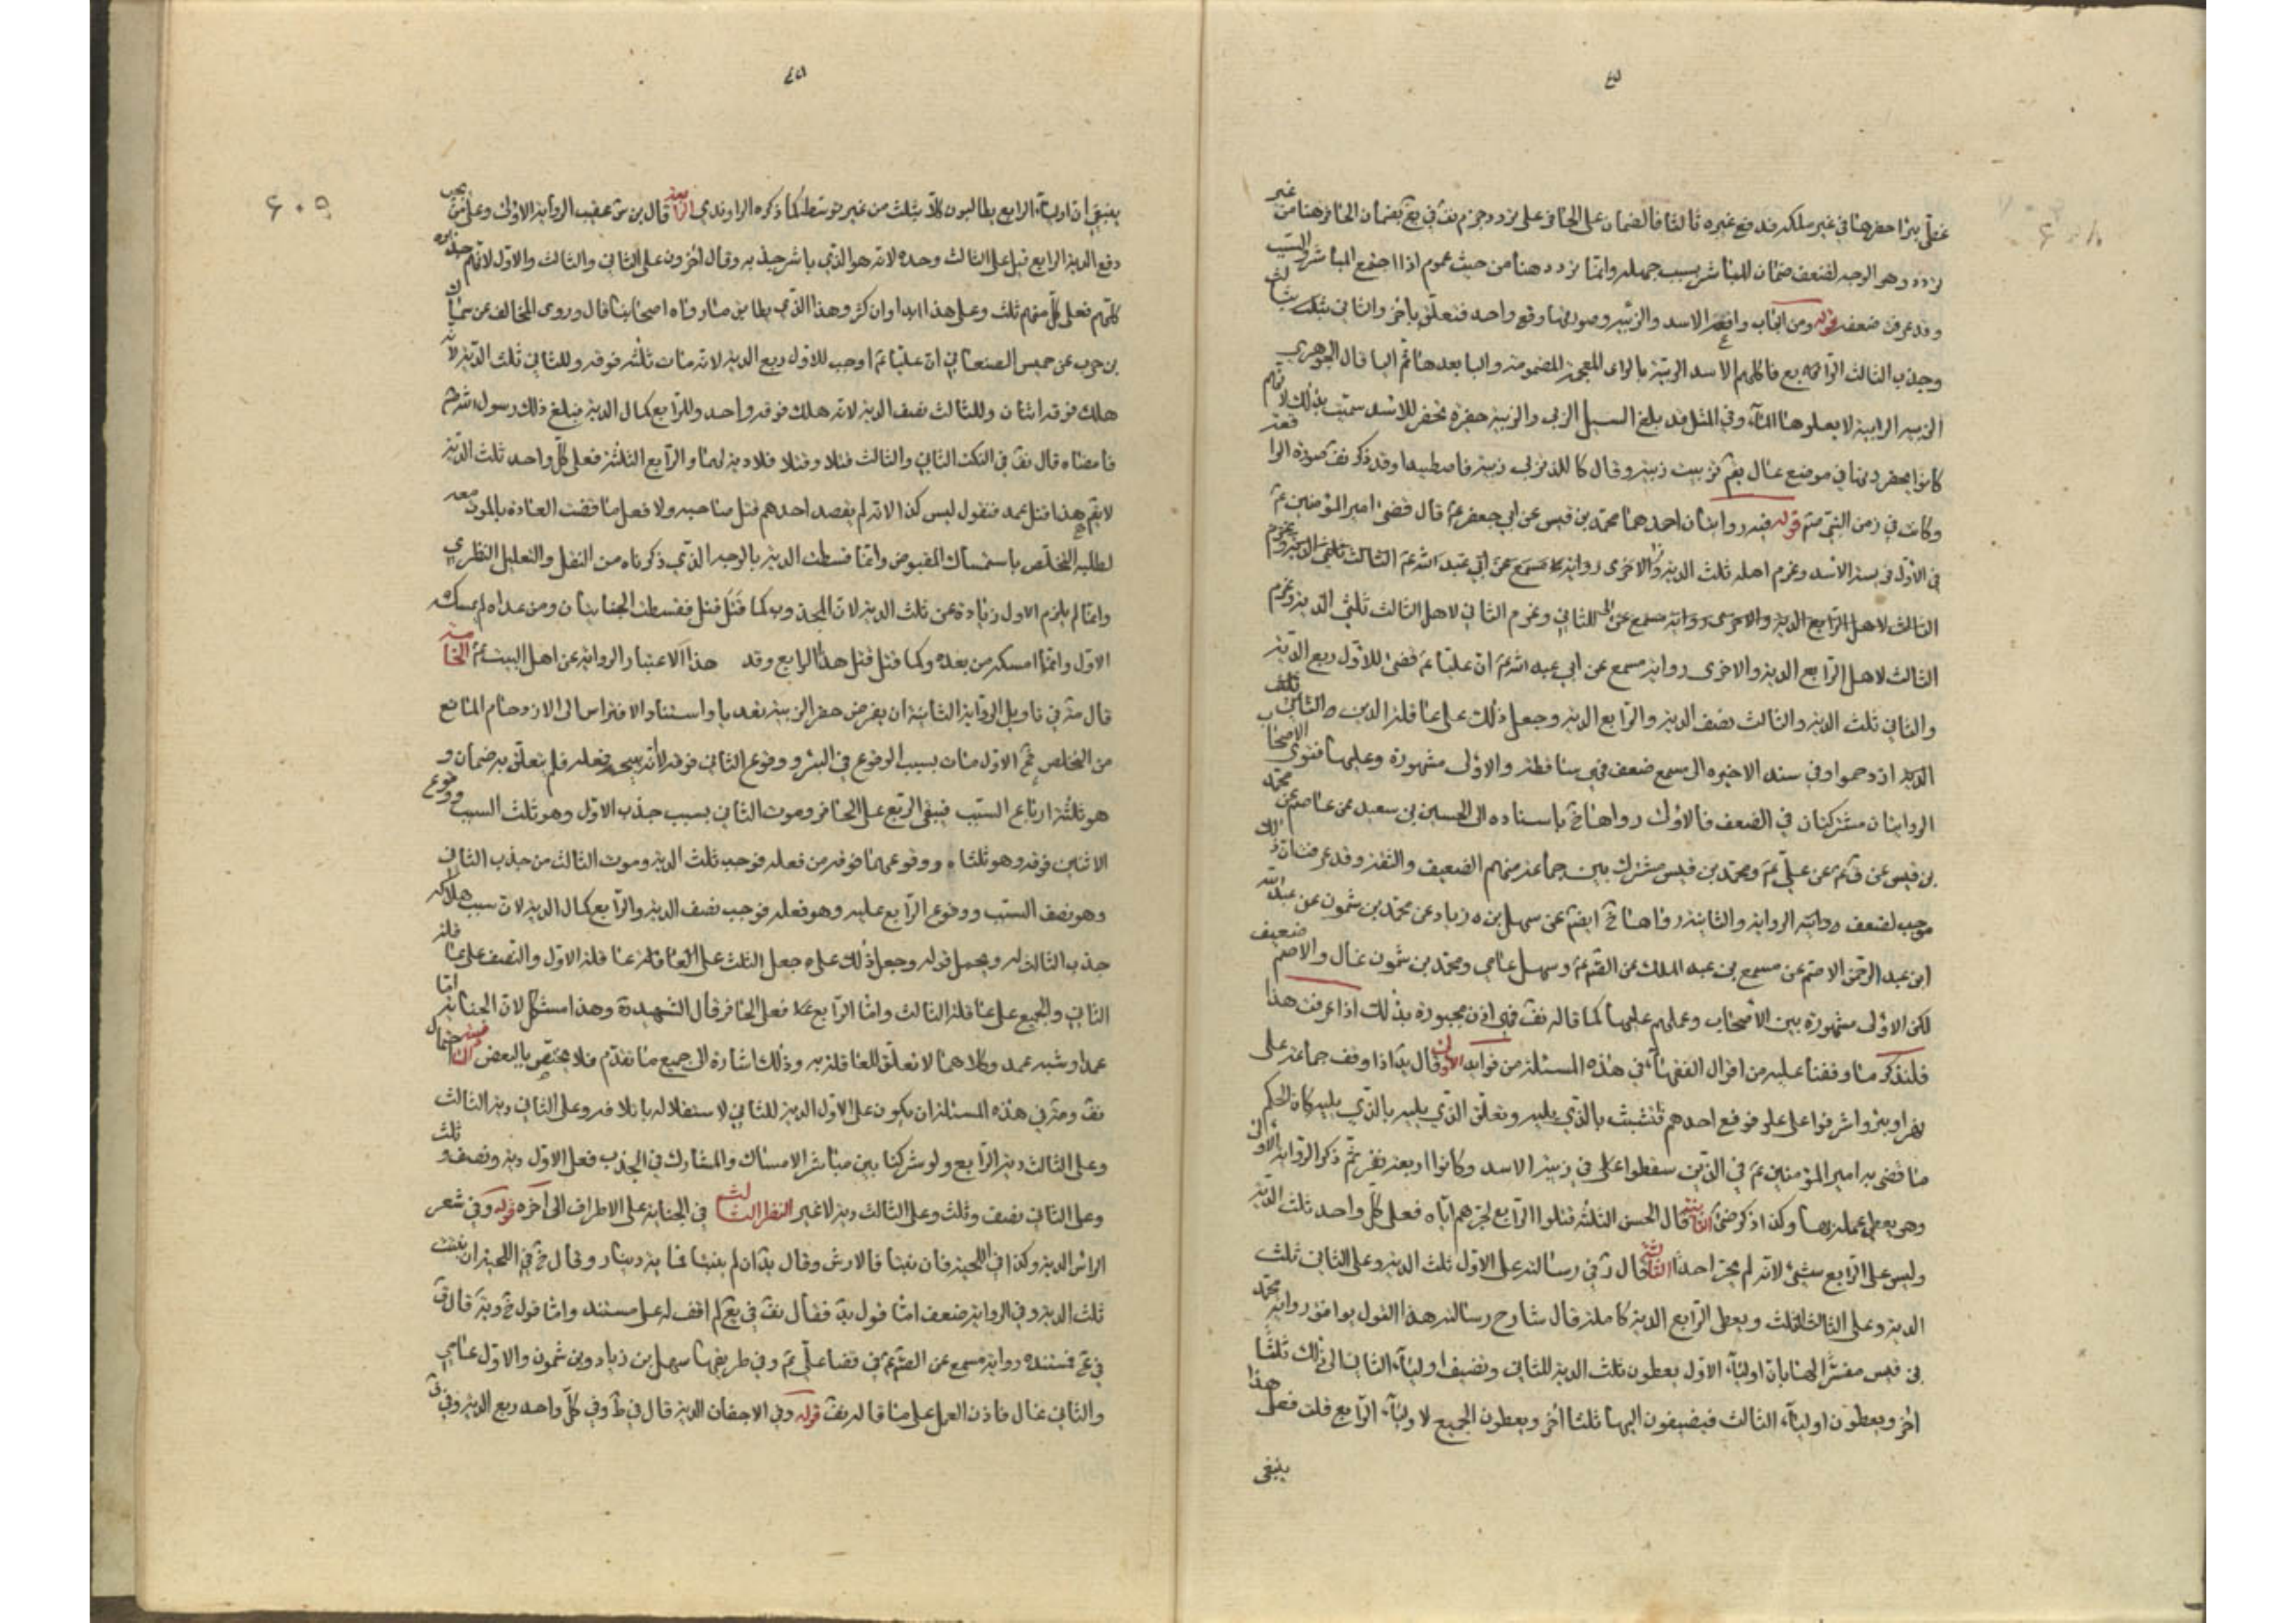 غطى بئرا حفرها في غير ملكه فدفع غيره ثالثا فالضمان على الحافر على تردد وجزم نف في يع بضمان الحافر هنا من غير
تردد وهو الوجه لضعف ضمان المباشر بسبب جهله وانما تردد هنا من حيث عموم اذا اجتمع المباشر والسبب
وقد عرفت ضعفه قوله ومن الباب واقعة الاسد والزبية وصورتها وقع واحد فتعلق بآخر والثاني بثالث
وجذب الثالث الرابع فاكلهم الاسد الزبية بالزاى المعجمة المضمومة والبا بعدها ثم اليا قال الجوهري
الزبية الرابية لا يعلوها الماء وفي المثل قد بلغ السيل الزبى والزبية حفرة تحفر للاسد سميت بذلك لانهم
كانوا يحفرونها في موضع عال يقم تزبيت زبية وقال كاللذ تزبى زبية فاصطيدا وقد ذكر نف صورة الواقعة
وكانت في زمن النبي صم قوله فيه روايتان احدهما محمد بن قيس عن ابي جعفر عم قال قضى امير المؤمنين عم
في الاول فريسة الاسد وغرم اهله ثلث الدية والاخرى رواية مسمع عن ابي عبد الله عم الثالث ثلثي الدية وغرم
الثالث لاهل الرابع الدية والاخرى رواية مسمع عن للثاني وغرم الثاني لاهل الثالث ثلثي الدية وغرم
الثالث لاهل الرابع الدية والاخرى رواية مسمع عن ابي عبد الله عم ان عليا عم قضى للاول ربع الدية
والثاني ثلث الدية والثالث نصف الدية والرابع الدية وجعل ذلك على عاقلة الذين
ازدحموا وفي سند الاخيرة الى مسمع ضعف فهي ساقطة والاولى مشهورة وعليها فتوى الاصحاب
الروايتان مشتركتان في الضعف فالاولى رواها خ باسناده الى الحسين بن سعيد عن عاصم عن محمد
بن قيس عن ق عم عن علي عم ومحمد بن قيس مشترك بين جماعة منهم الضعيف والثقة وقد عرفت ان ذلك
موجب لضعف الرواية والثانية رواها خ ايضم عن سهل بن زياد عن محمد بن شمون عن عبد الله
ابن عبد الرحمن الاصم عن مسمع بن عبد الملك عن القم عم وسهل عامي ومحمد بن شمون غال والاصم ضعيف
لكن الاولى مشهورة بين الاصحاب وعملهم عليها كما قاله نف فهي اذن مجبورة بذلك اذا عرفت هذا
فلنذكر ما وقفنا عليه من اقوال الفقهاء في هذه المسئلة من فوايد الاولى قال يد اذا وقف جماعة على
نهر او بئر واشرفوا على علو فوقع احدهم فتشبث بالذي يليه وتعلق الذي يليه بالذي يليه كان الحكم
ما قضى به امير المؤمنين عم في الذين سقطوا على في زبية الاسد وكانوا اربعة نفر ثم ذكر الرواية الاولى
وهو يعطي عمله بها وكذا ذكر ضى الثانية قال الحسن الثلثة قتلوا الرابع لجرهم اياه فعلى كل واحد ثلث الدية
وليس على الرابع شيء لانه لم يجر احدا الثالثة قال في رسالته على الاول ثلث الدية وعلى الثاني ثلث
الدية وعلى الثالث ثلث ويعطى الرابع الدية كاملة قال شارح رسالته هذا القول يوافق رواية محمد
بن قيس مفسرا لها بان اولياء الاول يعطون ثلث الدية للثاني وتضيف اولياء الثاني الى ذلك ثلثا
آخر ويعطون اولياء الثالث فيضيفون اليها ثلثا آخر ويعطون الجميع لاولياء الرابع قلت فعلى هذا
ينبغي
۶۰۵
ينبغي ان اولياء الرابع يطالبون كلا بثلث من غير توسط كما ذكره الراوندي الرابعة قال بن س عقيب الرواية الاولى وعلى من يجب
دفع الدية الرابع قيل على الثالث وحده لانه هو الذي باشر جذبه وقال آخرون على الثاني والثالث والاول لانهم جذبوه
كلهم فعلى كل منهم ثلث وعلى هذا ابدا وان كثر وهذا الذي يطابق ما رواه اصحابنا قال وروى المخالف عن سماك
بن حرب عن حميس الصنعاني ان عليا عم اوجب للاول ربع الدية لانه مات ثلثه فوقه وللثاني ثلث الدية لانه
هلك فوقه اثنان وللثالث نصف الدية لانه هلك فوقه واحد وللرابع كمال الدية فبلغ ذلك رسول الله صم
فامضاه قال نف في النكت الثاني والثالث قتلا وقتلا فلا دية لهما والرابع الثلثة فعلى كل واحد ثلث الدية
لا يقم هذا قتل عمد فنقول ليس كذا لانه لم يقصد احدهم قتل صاحبه ولا فعل ما قضت العادة بالموت معه
لطلبه التخلص باستمساك المقبوض وانما قسطت الدية بالوجه الذي ذكرناه من النقل والتعليل النظري
وانما لم يلزم الاول زيادة عن ثلث الدية لان المجذوب كما قُتل قتل فقسطت الجنايتان ومن عداه لم يمسكه
الاول وانما امسكه من بعده وكما قتل قتل هذا الرابع وقد هذا الاعتبار الرواية عن اهل البيت عم الخامسة
قال مة في تاويل الرواية الثانية ان يفرض حفر الزبية تعديا واستناد الافتراس الى الازدحام المانع
من التخلص ثم الاول مات بسبب الوقوع في البئر ووقوع الثاني فوقه لانه بسبب فعله فلم يتعلق به ضمان و
هو ثلثة ارباع السبب فيبقى الربع على الحافر وموت الثاني بسبب جذب الاول وهو ثلث السبب ووقوع
الاثنين فوقه وهو ثلثاه ووقوعهما فوقه من فعله فوجب ثلث الدية وموت الثالث من جذب الثاني
وهو نصف السبب ووقوع الرابع عليه وهو فعله فوجب نصف الدية والرابع كمال الدية لان سبب هلاكه
جذب الثالث له ويحمل قوله وجعل ذلك على جعل الثلث على عاقلة الاول والنصف على عاقلة
الثاني والجميع على عاقلة الثالث واما الرابع فعلى الحافر قال الشهيد وهذا مشكل لان الجناية اما
عمدا وشبه عمد وكلاهما لا تعلق للعاقلة به وذلك اشارة الى جميع ما تقدم فلا يختص بالبعض احتمال
نف ومة في هذه المسئلة ان يكون على الاول الدية للثاني لاستقلاله باتلافه وعلى الثاني دية الثالث
وعلى الثالث دية الرابع ولو شركنا بين مباشر الامساك والمشارك في الجذب فعلى الاول دية ونصف وثلث
وعلى الثاني نصف وثلث وعلى الثالث دية لا غير النظر الثالث في الجناية على الاطراف الى آخره قوله وفي شعر
الراس الدية وكذا في اللحية فان نبتا فالارش وقال يد ان لم ينبتا فماية دينار وقال خ في اللحية ان نبتت
ثلث الدية وفي الرواية ضعف اما قول يد فقال نف في يع لم اقف له على مستند واما قول خ
فمستنده رواية مسمع عن القم عم في قضا علي عم وفي طريقها سهل بن زياد وبن شمون والاول عامي
والثاني غال فاذن العمل على ما قاله نف قوله وفي الاجفان الدية قال في ط وفي كل واحد ربع الدية وفي ف